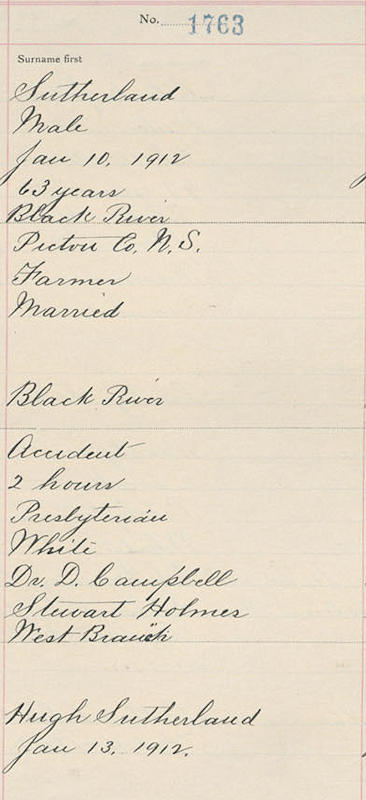 No. 1763
Surname first
Sutherland
Male
Jan 10, 1912
63 years
Black River
Pictou Co, N.S.
Farmer
Married
Black River
Accident
2 hours
Presbyterian
White
Dr. D. Campbell
Stewart Holmes
West Branch
Hugh Sutherland
Jan 13, 1912.